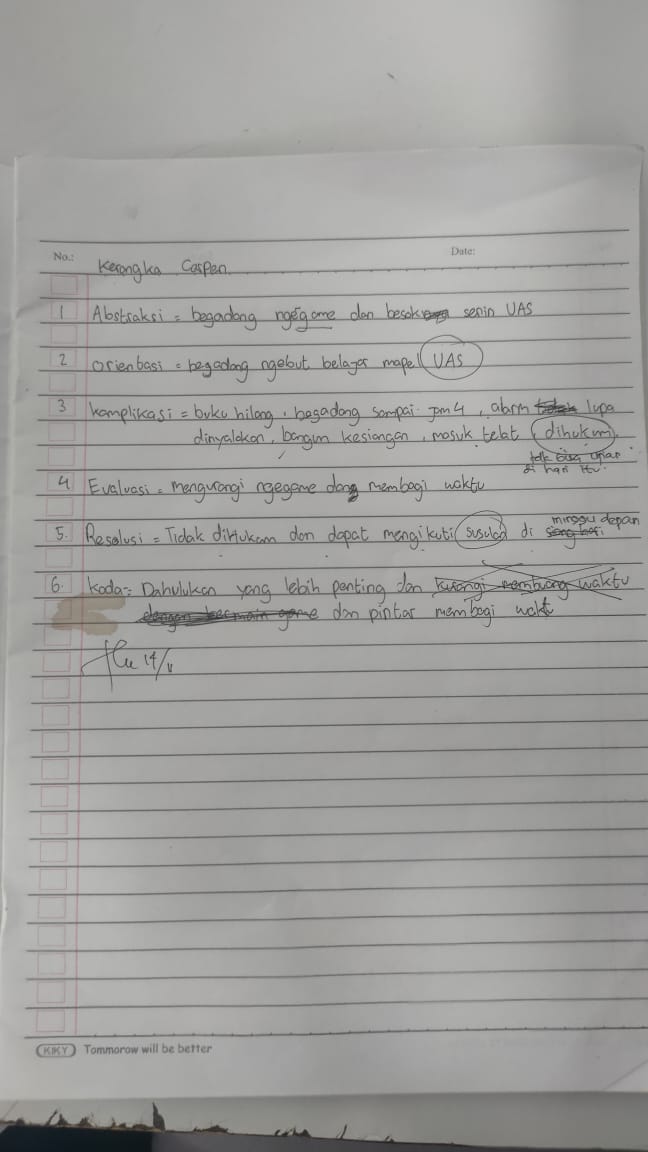 No.:
Date:
Kerangka Cerpen.
1 Abstraksi = begadang ngégame dan besok senin UAS
2 Orientasi = begadang ngebut belajar mapel UAS
3 Komplikasi = buku hilang, begadang sampai jam 4, alarm lupa
dinyalakan, bangun kesiangan, masuk telat, dihukum,
tdk bisa ujian
di hari itu.
4 Evaluasi = mengurangi ngegame dan membagi waktu
minggu depan
5. Resolusi = Tidak dihukum dan dapat mengikuti susulan di siang hari.
6. Koda = Dahulukan yang lebih penting dan kurangi membuang waktu
dengan bermain game dan pintar membagi wakt
14/
KIKY Tommorow will be better